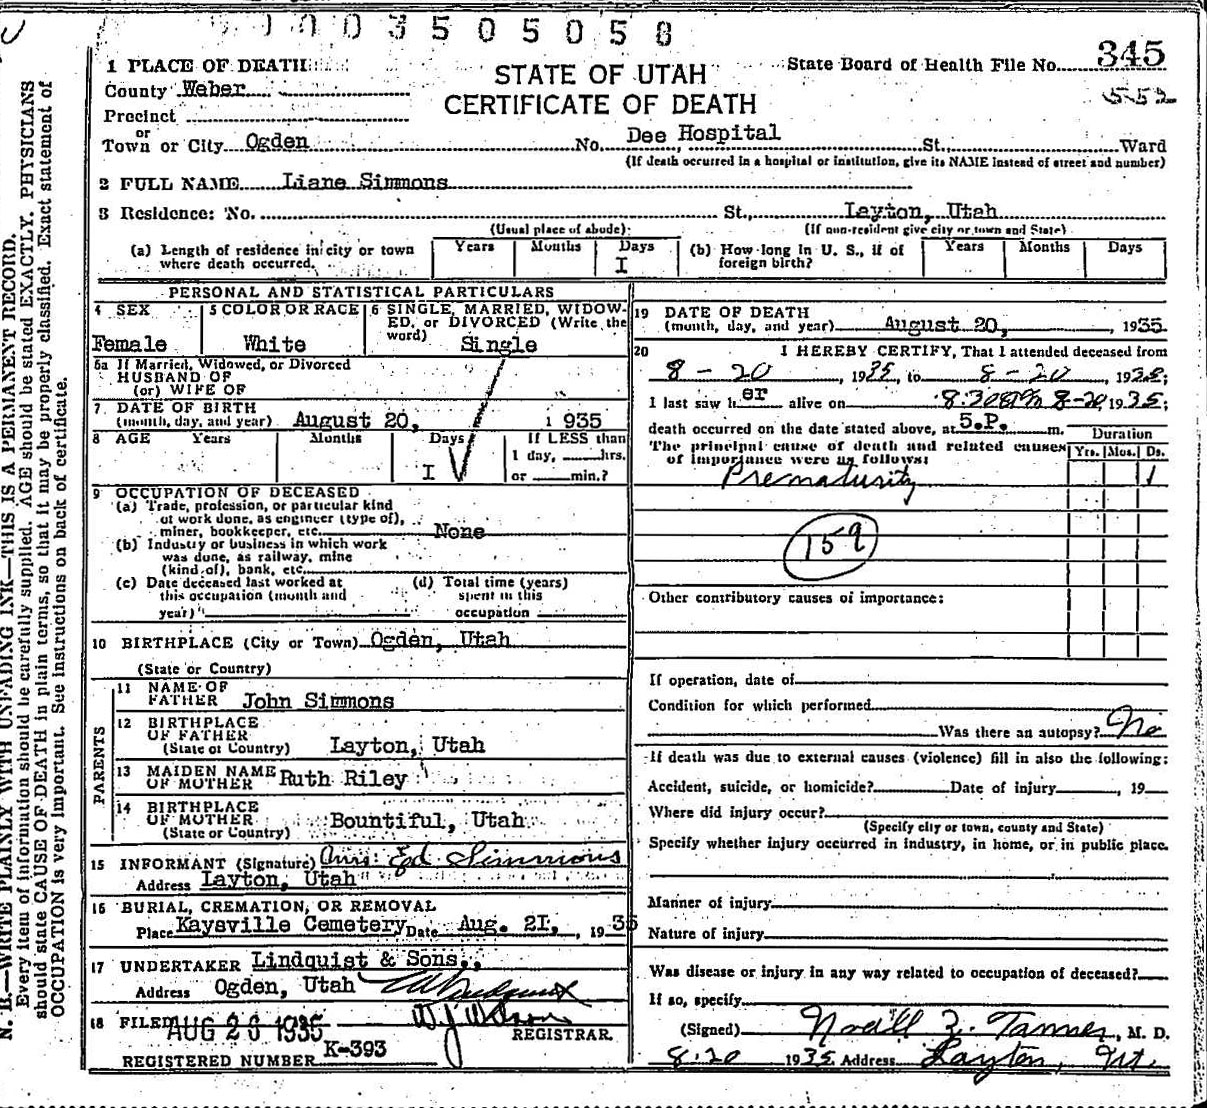 0003505058
1 PLACE OF DEATH
STATE OF UTAH
State Board of Health File No. 345
County Weber
CERTIFICATE OF DEATH
552
Precinct
or
Town or City Ogden No. Dee Hospital St., Ward
(If death occurred in a hospital or institution, give its NAME instead of street and number)
2 FULL NAME Liane Simmons
3 Residence: No. St., Layton, Utah
(Usual place of abode) (If non-resident give city or town and State)
(a) Length of residence in city or town where death occurred. Years Months Days I
(b) How long in U. S., if of foreign birth? Years Months Days
PERSONAL AND STATISTICAL PARTICULARS
4 SEX Female
5 COLOR OR RACE White
6 SINGLE, MARRIED, WIDOWED, or DIVORCED (Write the word) Single
6a If Married, Widowed, or Divorced
HUSBAND OF
(or) WIFE OF
7 DATE OF BIRTH
(month, day, and year) August 20, 1935
8 AGE Years Months Days I
If LESS than
1 day, hrs.
or min.?
9 OCCUPATION OF DECEASED
(a) Trade, profession, or particular kind
of work done, as engineer (type of),
miner, bookkeeper, etc. None
(b) Industry or business in which work
was done, as railway, mine
(kind of), bank, etc.
(c) Date deceased last worked at
this occupation (month and
year)
(d) Total time (years)
spent in this
occupation
10 BIRTHPLACE (City or Town) Ogden, Utah
(State or Country)
PARENTS
11 NAME OF
FATHER John Simmons
12 BIRTHPLACE
OF FATHER
(State or Country) Layton, Utah
13 MAIDEN NAME
OF MOTHER Ruth Riley
14 BIRTHPLACE
OF MOTHER
(State or Country) Bountiful, Utah
15 INFORMANT (Signature) Ed Simmons
Address Layton, Utah
16 BURIAL, CREMATION, OR REMOVAL
Place Kaysville Cemetery Date Aug. 2I, , 1935
17 UNDERTAKER Lindquist & Sons.,
Address Ogden, Utah
18 FILED AUG 26 1935
REGISTRAR.
REGISTERED NUMBER K-393
19 DATE OF DEATH
(month, day, and year) August 20, , 1935
20 I HEREBY CERTIFY, That I attended deceased from
8 - 20 , 1935, to 8 - 20 , 1935;
I last saw her alive on 8:30 8-20, 1935;
death occurred on the date stated above, at 5.P. m.
The principal cause of death and related causes
of importance were as follows:
Duration
Yrs. Mos. Ds.
Prematurity 1
159
Other contributory causes of importance:
If operation, date of
Condition for which performed
Was there an autopsy? No
If death was due to external causes (violence) fill in also the following:
Accident, suicide, or homicide? Date of injury , 19
Where did injury occur?
(Specify city or town, county and State)
Specify whether injury occurred in industry, in home, or in public place.
Manner of injury
Nature of injury
Was disease or injury in any way related to occupation of deceased?
If so, specify
(Signed) Noall Z. Tanner, M. D.
8-20 1935 Address Layton, Ut.
N. B.—WRITE PLAINLY WITH UNFADING INK—THIS IS A PERMANENT RECORD.
Every item of information should be carefully supplied. AGE should be stated EXACTLY. PHYSICIANS
should state CAUSE OF DEATH in plain terms, so that it may be properly classified. Exact statement of
OCCUPATION is very important. See instructions on back of certificate.